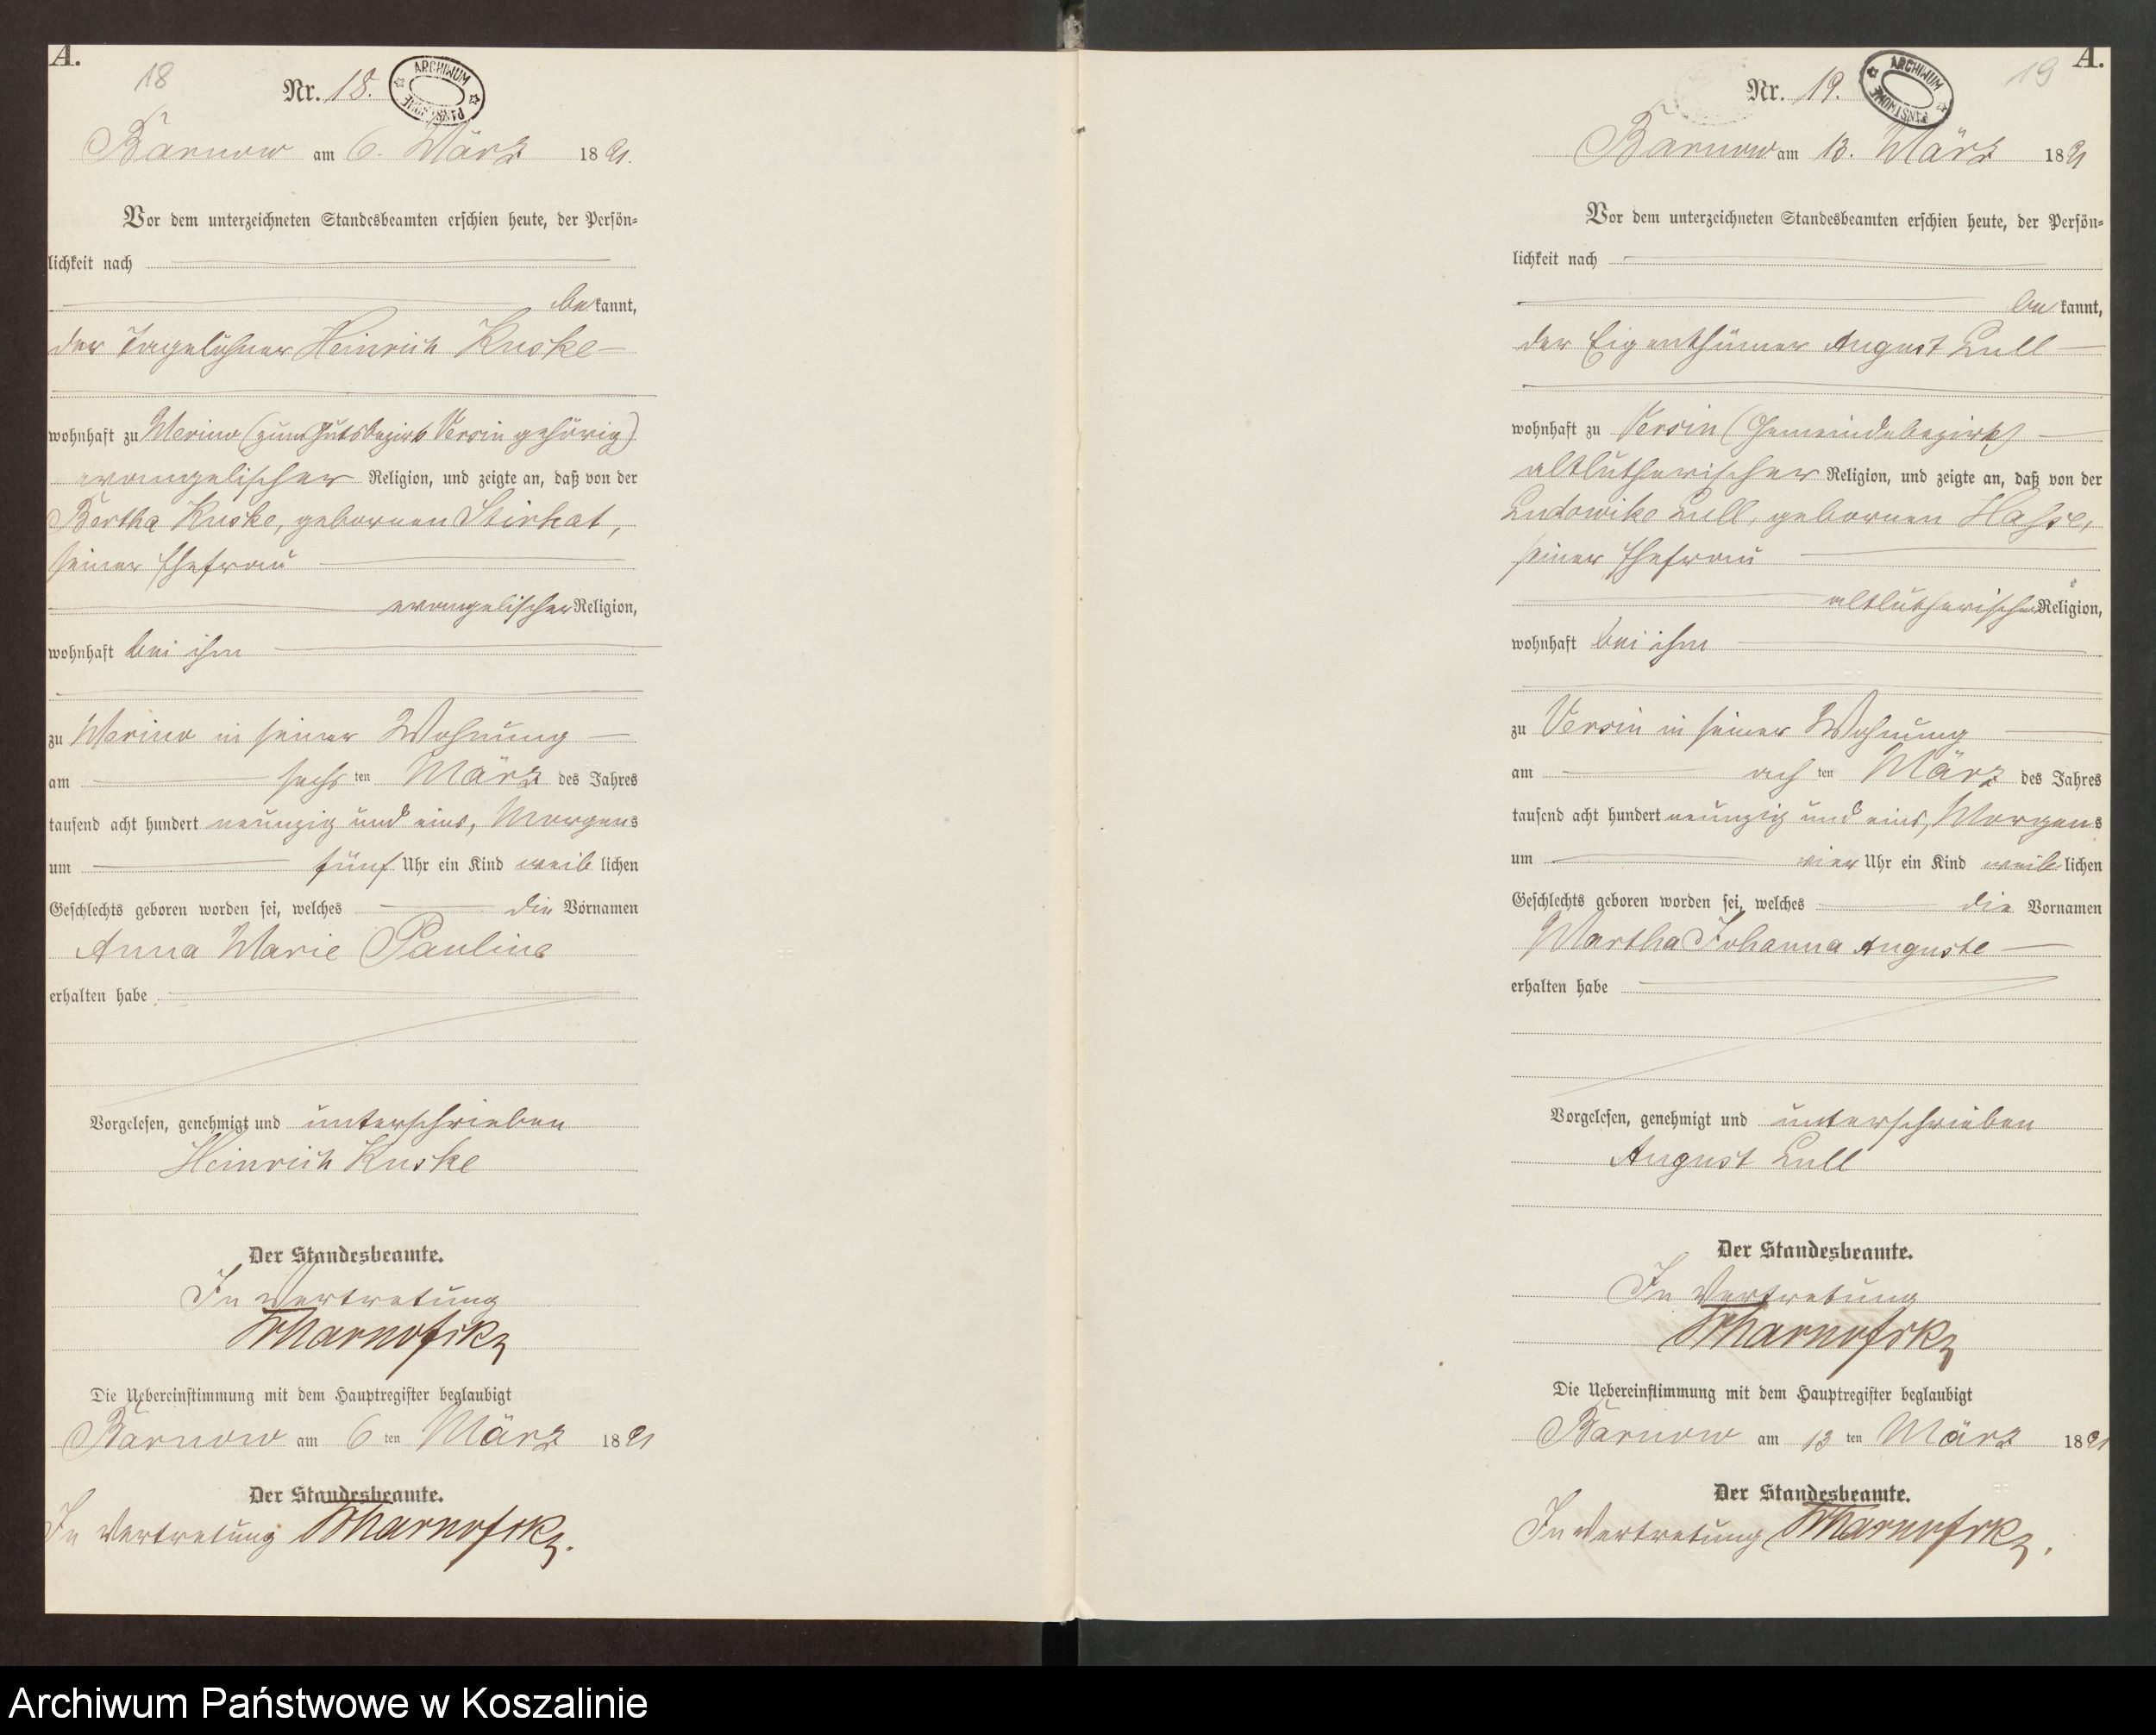 A.
18
Nr. 18.
ARCHIWUM PAŃSTWOWE
Barnow am 6. März 1891.
Vor dem unterzeichneten Standesbeamten erschien heute, der Persön-
lichkeit nach
bekannt,
der Tagelöhner Heinrich Kuske
wohnhaft zu Merino (zum Gutsbezirk Versin gehörig)
evangelischer Religion, und zeigte an, daß von der
Bertha Kuske, geborenen Stirkat,
seiner Ehefrau
evangelischer Religion,
wohnhaft bei ihm
zu Merino in seiner Wohnung
am sechsten März des Jahres
tausend acht hundert neunzig und eins, Morgens
um fünf Uhr ein Kind weiblichen
Geschlechts geboren worden sei, welches die Vornamen
Anna Marie Pauline
erhalten habe
Vorgelesen, genehmigt und unterschrieben
Heinrich Kuske
Der Standesbeamte.
In Vertretung
Die Uebereinstimmung mit dem Hauptregister beglaubigt
Barnow am 6ten März 1891
Der Standesbeamte.
In Vertretung
A.
19
Nr. 19.
ARCHIWUM PAŃSTWOWE
Barnow am 13. März 1891
Vor dem unterzeichneten Standesbeamten erschien heute, der Persön-
lichkeit nach
bekannt,
der Eigenthümer August Lull
wohnhaft zu Versin (Gemeindebezirk)
altlutherischer Religion, und zeigte an, daß von der
Ludowike Lull, geborenen Hasse,
seiner Ehefrau
altlutherischer Religion,
wohnhaft bei ihm
zu Versin in seiner Wohnung
am achten März des Jahres
tausend acht hundert neunzig und eins, Morgens
um vier Uhr ein Kind weiblichen
Geschlechts geboren worden sei, welches die Vornamen
Martha Johanna Auguste
erhalten habe
Vorgelesen, genehmigt und unterschrieben
August Lull
Der Standesbeamte.
In Vertretung
Die Uebereinstimmung mit dem Hauptregister beglaubigt
Barnow am 13ten März 1891
Der Standesbeamte.
In Vertretung
Archiwum Państwowe w Koszalinie